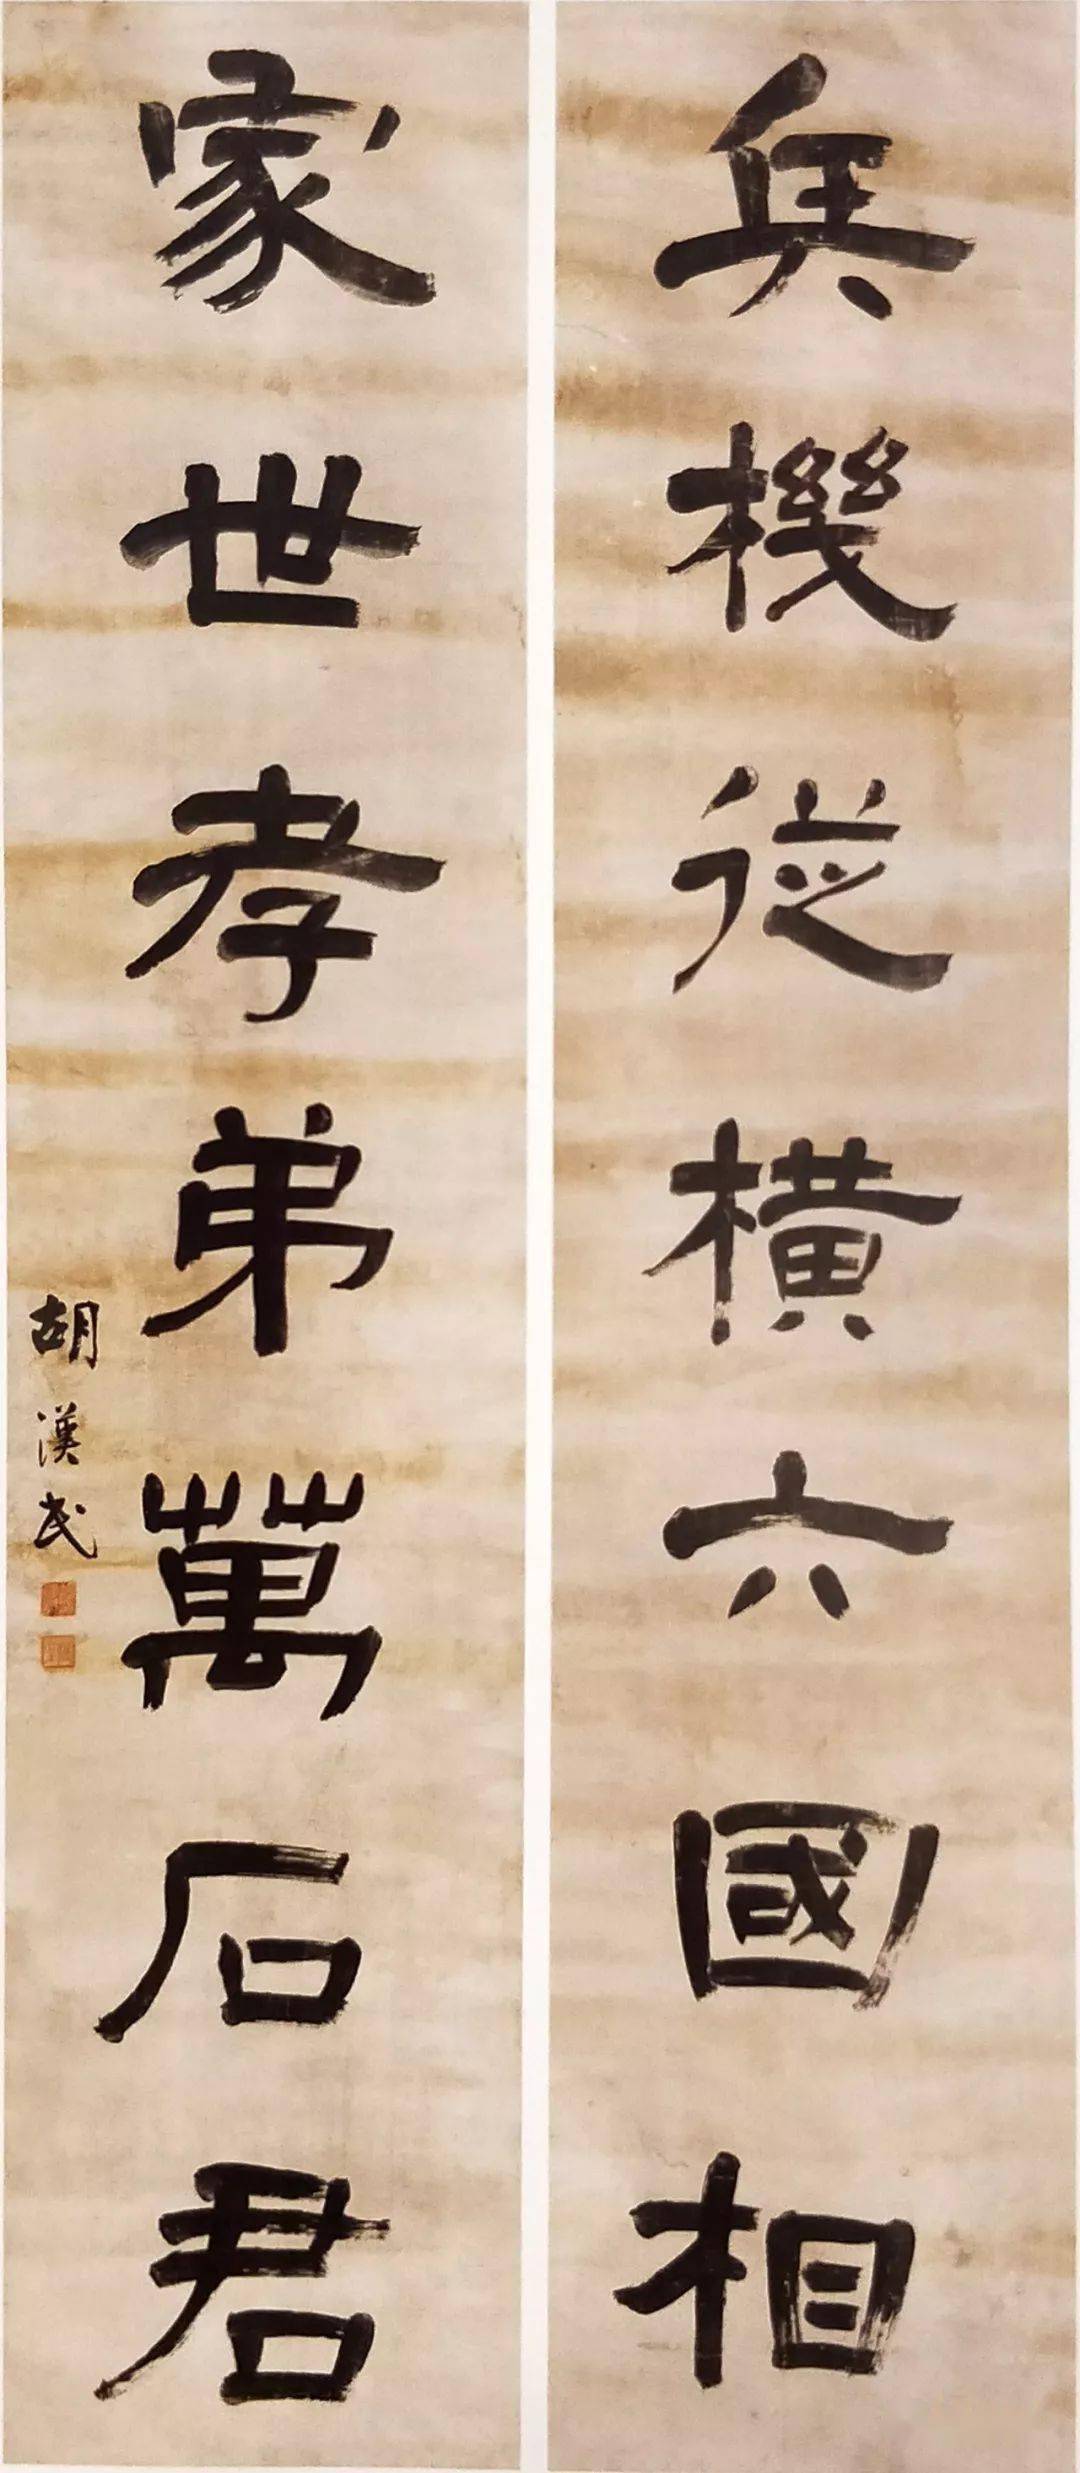 兵機從横六國相
家世孝弟萬石君
胡漢民